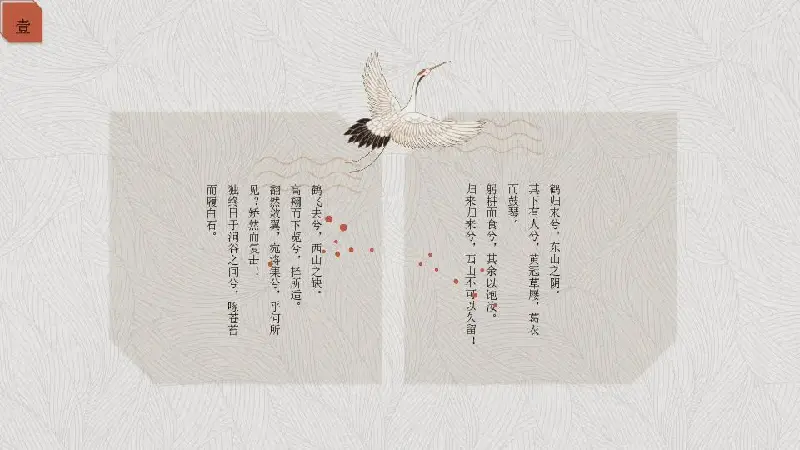 壹
鹤飞去兮，西山之缺。
高翔而下览兮，择所适。
翻然敛翼，宛将集兮，忽何所
见？矫然而复击！
独终日于涧谷之间兮，啄苍苔
而履白石。
鹤归来兮，东山之阴。
其下有人兮，黄冠草屦，葛衣
而鼓琴。
躬耕而食兮，其余以饱汝。
归来归来兮，西山不可以久留！